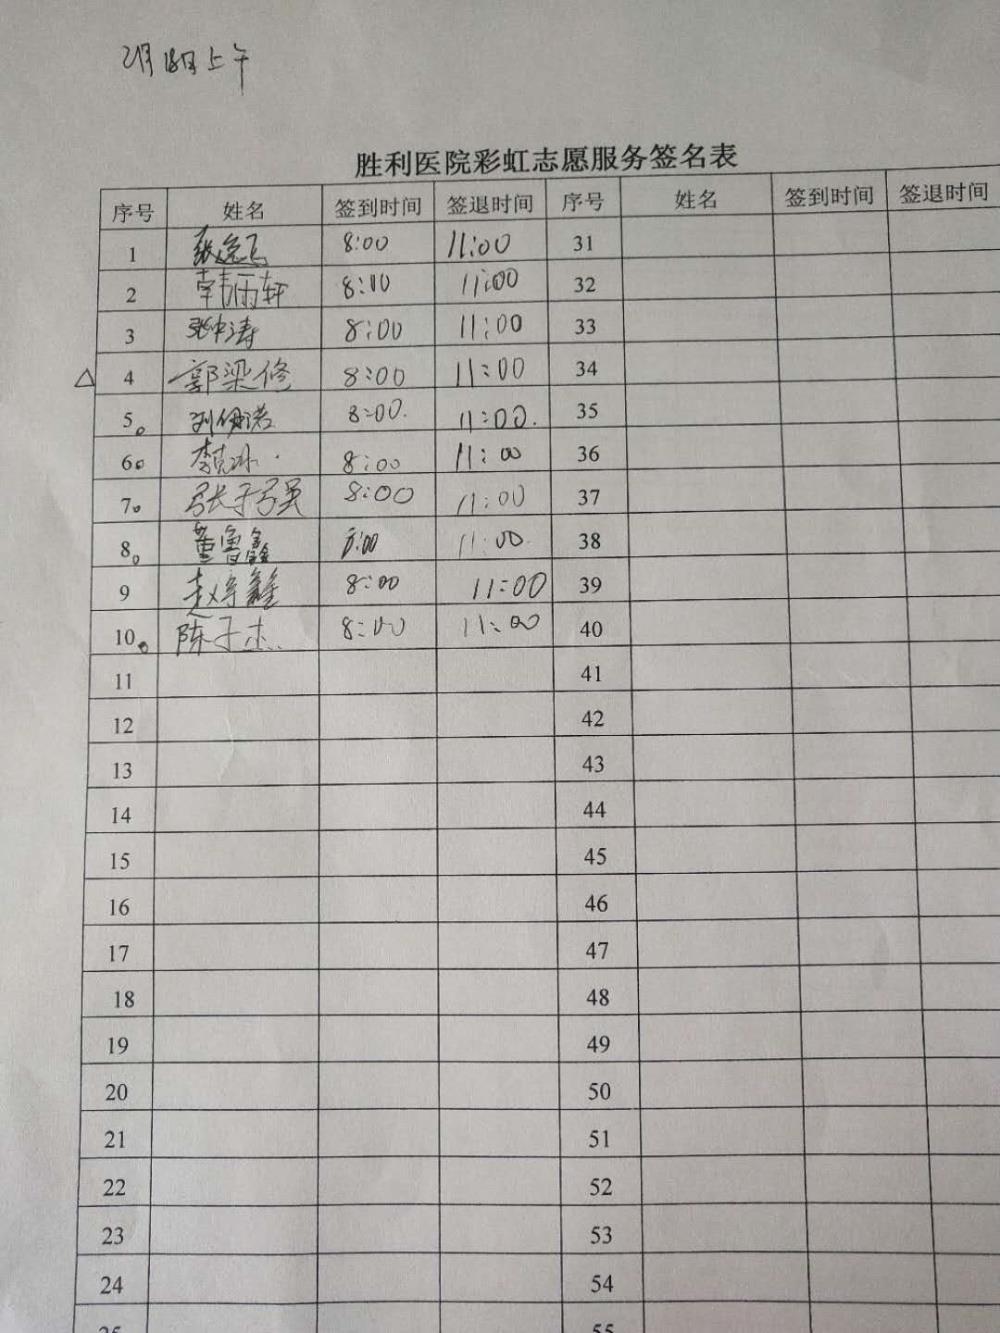 2月18日上午
胜利医院彩虹志愿服务签名表
序号 姓名 签到时间 签退时间 序号 姓名 签到时间 签退时间
1 8:00 11:00 31
2 韩雨轩 8:00 11:00 32
3 张中涛 8:00 11:00 33
△ 4 郭梁修 8:00 11:00 34
5。 刘伊诺 8:00. 11:00. 35
6。 李克冰 8:00 11:00 36
7。 张子强 8:00 11:00 37
8。 董鲁鑫 8:00 11:00 38
9 赵 8:00 11:00 39
10。 陈子杰 8:00 11:00 40
11 41
12 42
13 43
14 44
15 45
16 46
17 47
18 48
19 49
20 50
21 51
22 52
23 53
24 54
25 55